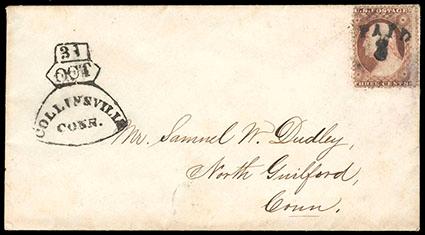 31
OCT
COLLINSVILLE
CONN.
U.S. POSTAGE
PAID
3
THREE CENTS
Mr. Samuel W. Dudley,
North Guilford,
Conn.